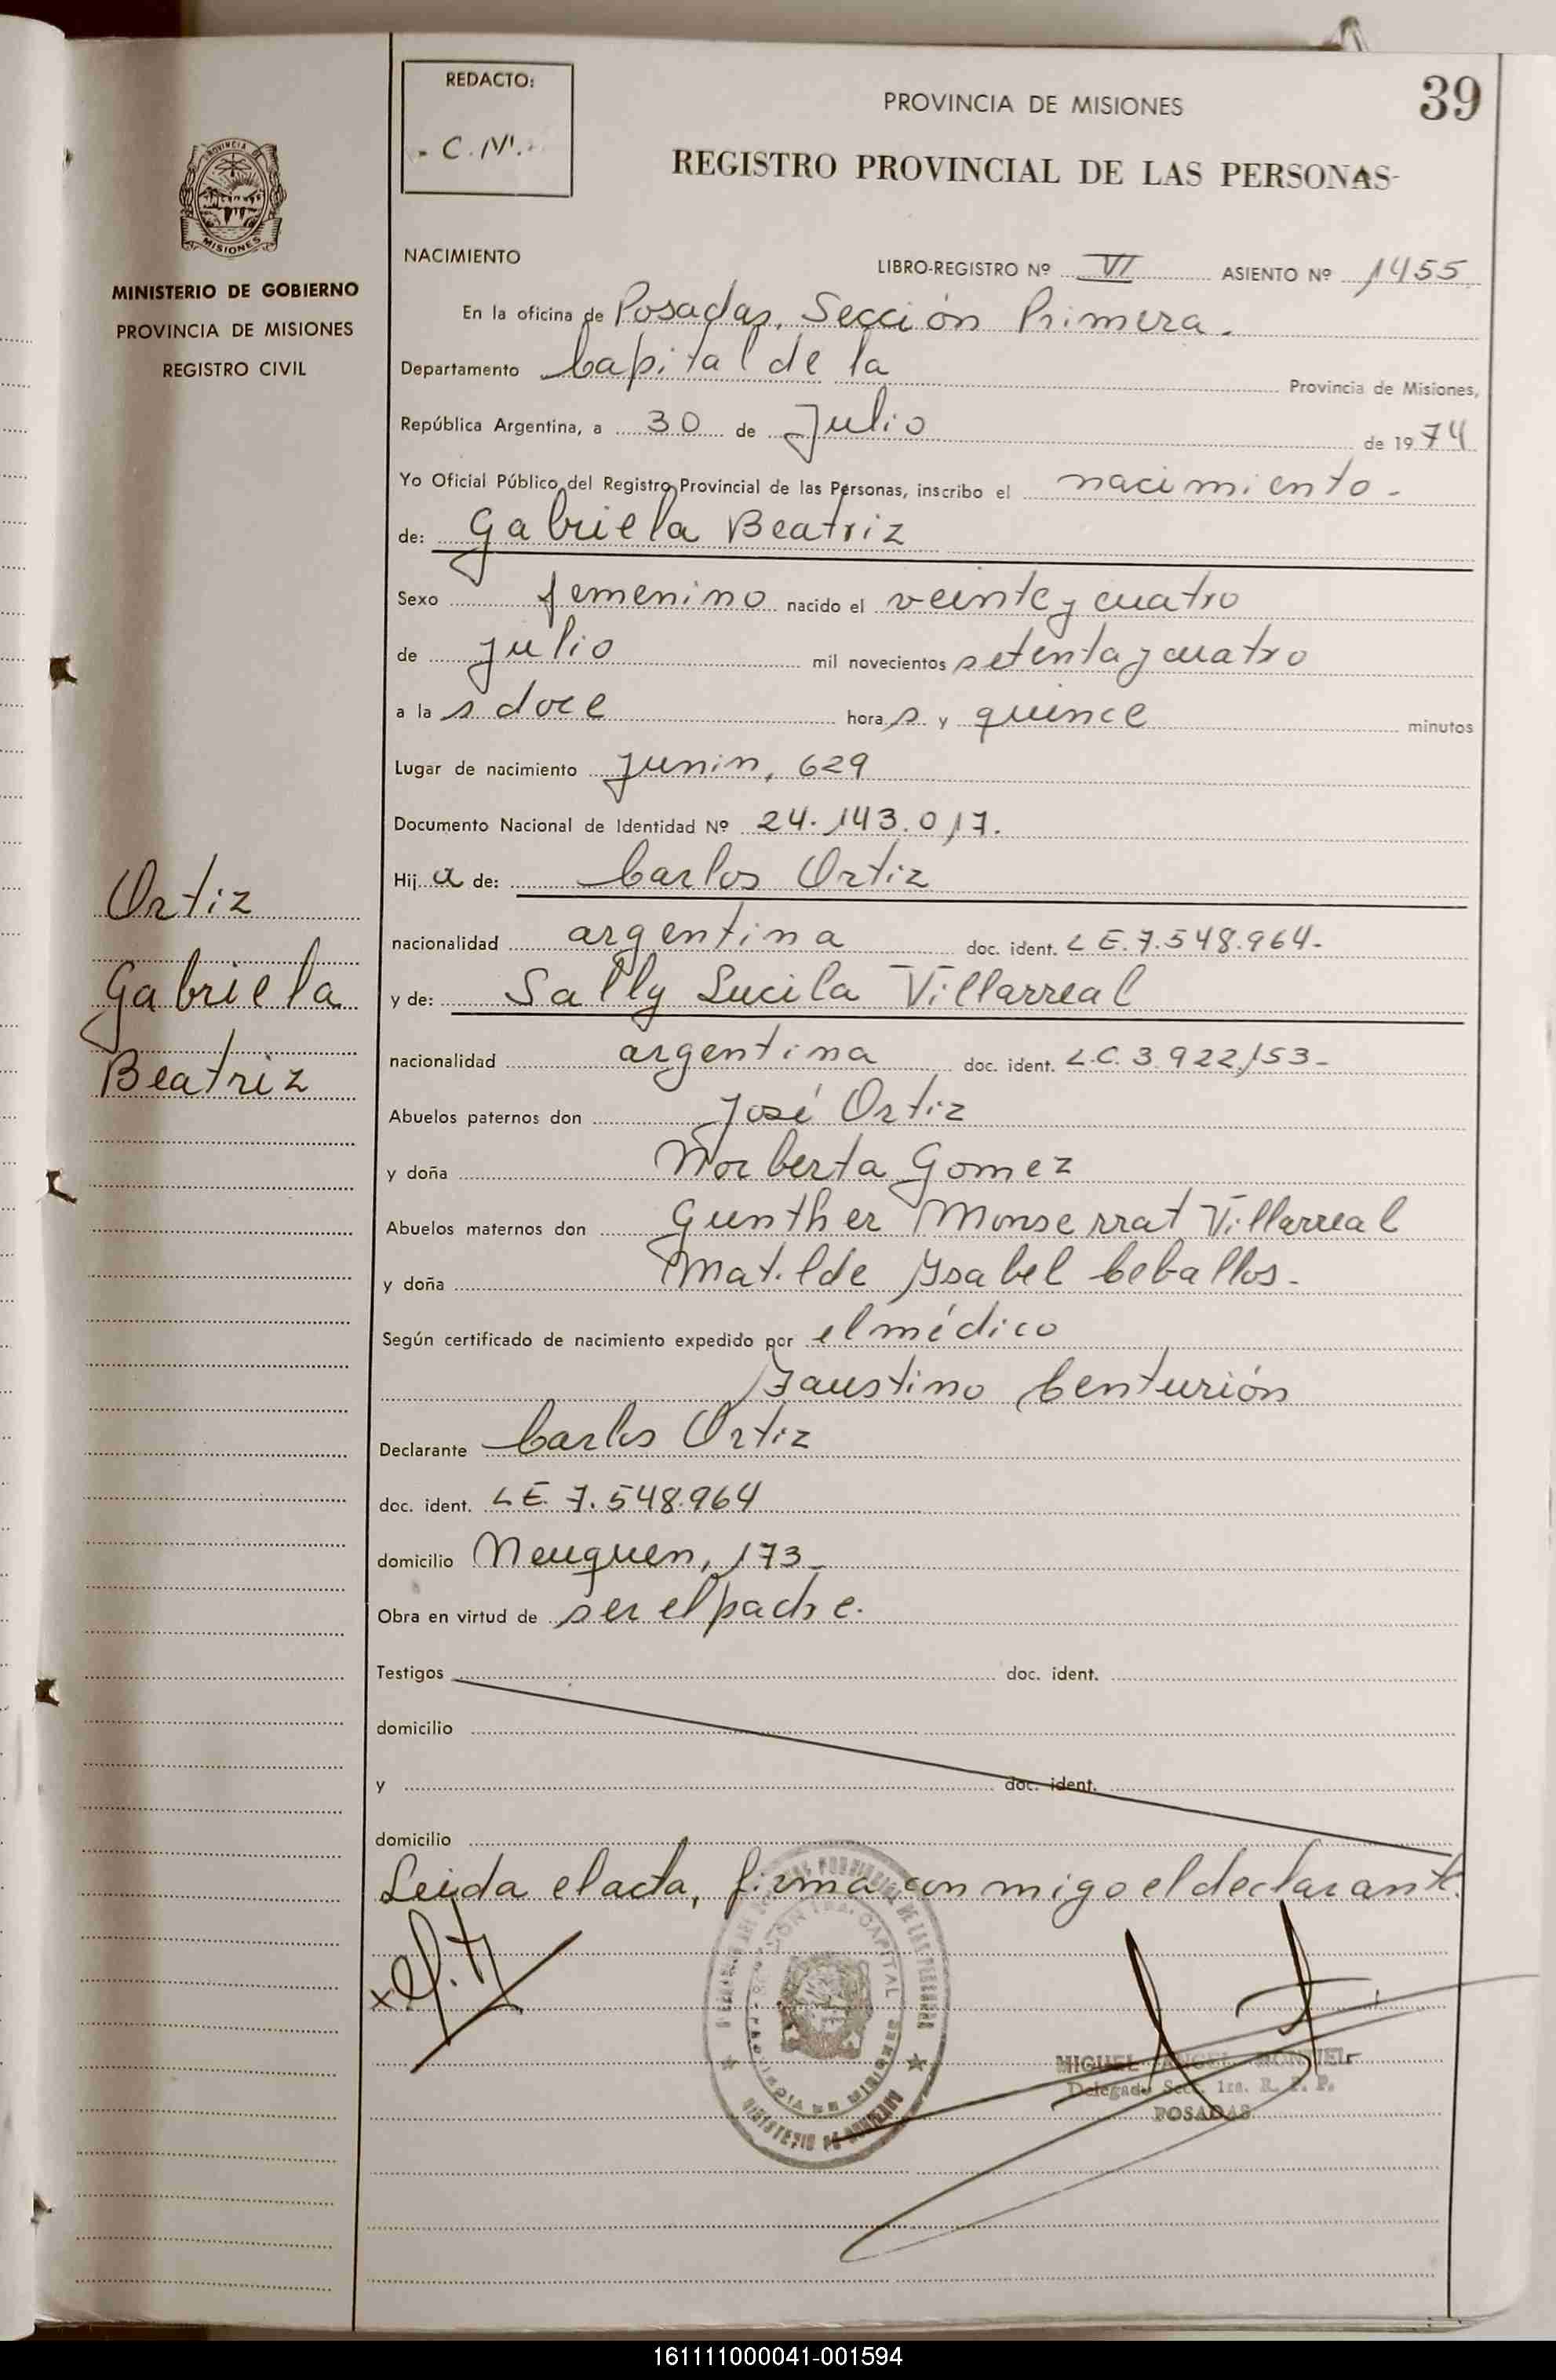 39
REDACTO:
- C. N. -
PROVINCIA DE MISIONES
REGISTRO PROVINCIAL DE LAS PERSONAS
MINISTERIO DE GOBIERNO
PROVINCIA DE MISIONES
REGISTRO CIVIL
NACIMIENTO LIBRO-REGISTRO Nº VI ASIENTO Nº 1455
En la oficina de Posadas, Sección Primera.
Departamento Capital de la Provincia de Misiones,
República Argentina, a 30 de Julio de 1974
Yo Oficial Público del Registro Provincial de las Personas, inscribo el nacimiento -
de: Gabriela Beatriz
Sexo femenino nacido el veinte y cuatro
de julio mil novecientos setenta y cuatro
a la s doce hora s y quince minutos
Lugar de nacimiento Junin, 629
Documento Nacional de Identidad Nº 24.143.017.
Hij a de: Carlos Ortiz
nacionalidad argentina doc. ident. L E. 7.548.964-
y de: Sally Lucila Villarreal
nacionalidad argentina doc. ident. L.C. 3.922.153-
Abuelos paternos don José Ortiz
y doña Norberta Gomez
Abuelos maternos don Gunther Monserrat Villarreal
y doña Matilde Ysabel Ceballos -
Según certificado de nacimiento expedido por el médico
Faustino Centurión
Declarante Carlos Ortiz
doc. ident. L E. 7.548.964
domicilio Neuquen, 173-
Obra en virtud de ser el padre.
Testigos doc. ident.
domicilio
y doc. ident.
domicilio
Leida el acta, firma con migo el declarante.
Ortiz
Gabriela
Beatriz
MIGUEL ANGEL
Delegado Secc. 1ra. R. P. P.
POSADAS
161111000041-001594